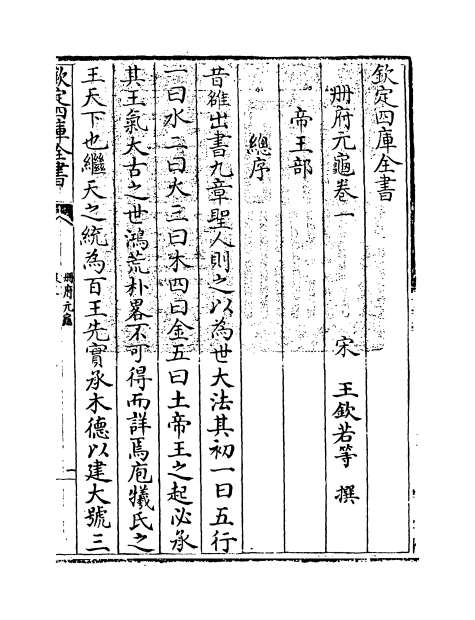 欽定四庫全書
冊府元龜卷一
宋 王欽若等 撰
帝王部
總序
昔雒出書九章聖人則之以為世大法其初一曰五行
一曰水二曰火三曰木四曰金五曰土帝王之起必承
其王氣太古之世鴻荒朴畧不可得而詳焉庖犧氏之
王天下也繼天之統為百王先實承木德以建大號三
欽定四庫全書
冊府元龜